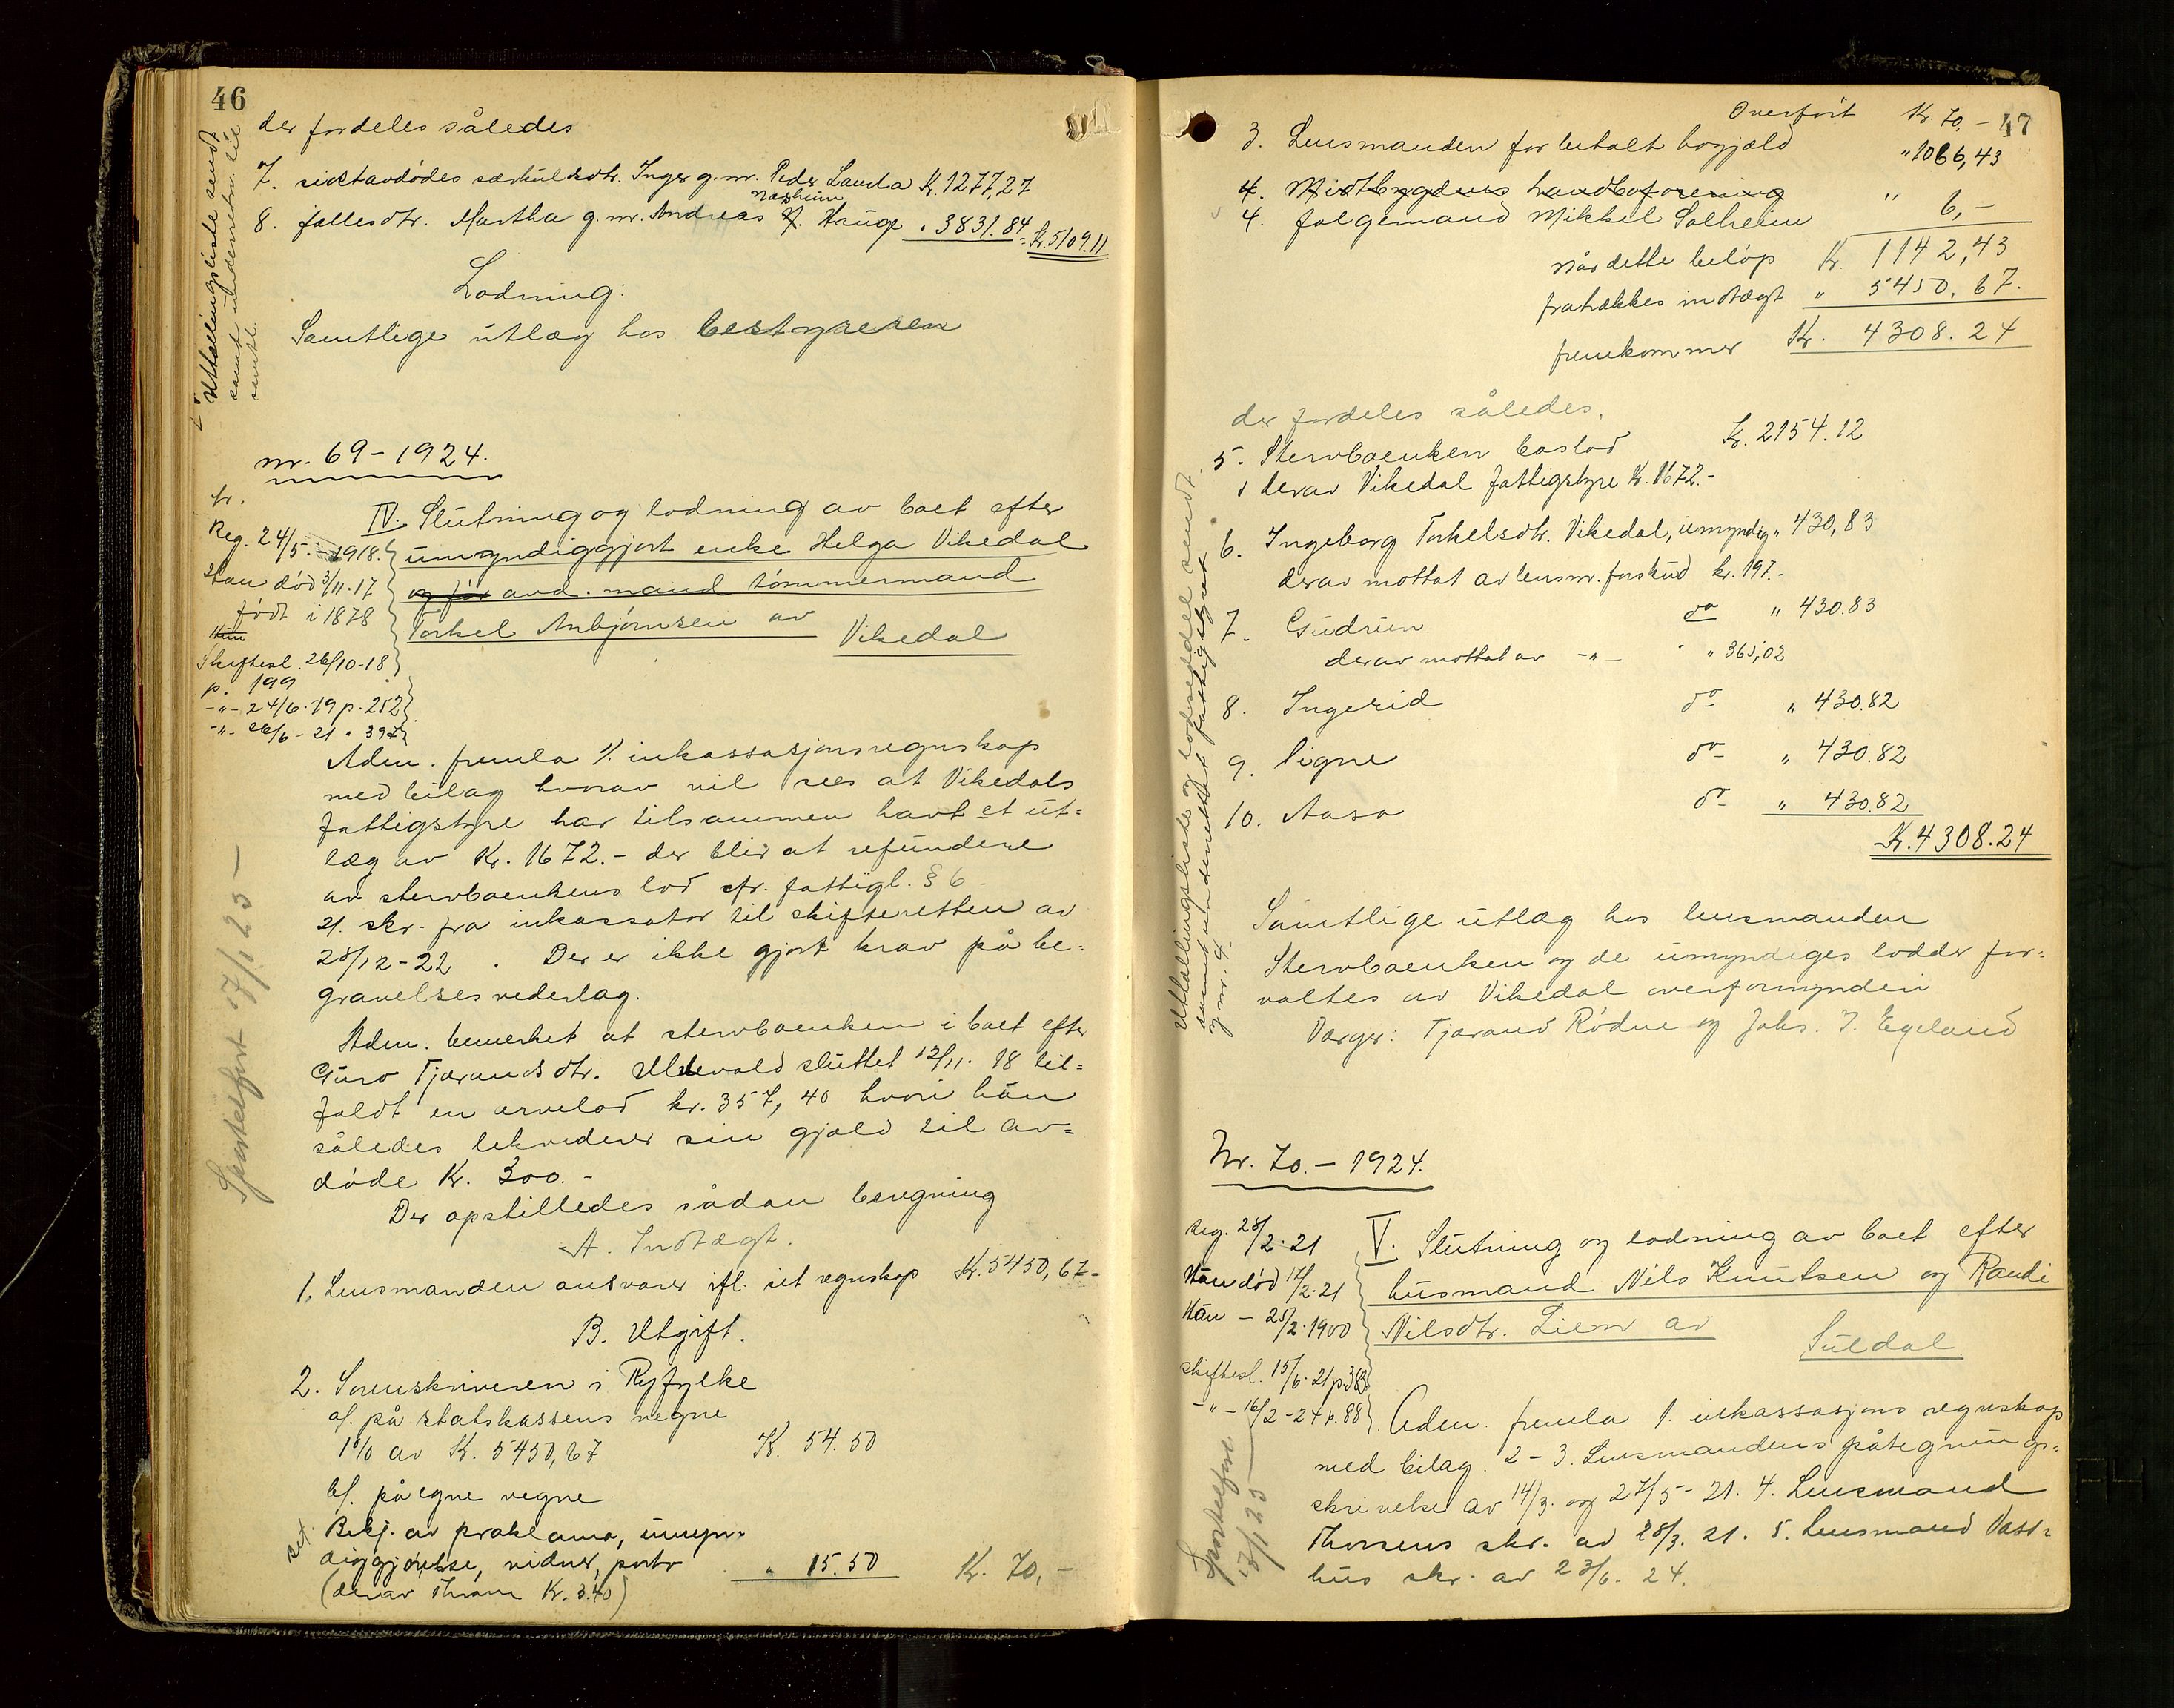 46
der fordeles således
7. sidstavdødes særkuldsdtr. Inger g.m. Peder Landa K. 1277,27
Næsheim
8. fællesdtr. Martha g.m. Andreas Hauge " 3831.84 = K. 5109.11
Lodning:
Samtlige utlæg hos bestyreren
Utbetalingsliste sendt
samt underretn. til
samtl.
nr. 69 - 1924.
IV. Slutning og lodning av boet efter
umyndiggjort enke Helga Vikedal
og før avd. mand tømmermand
Torkel Anbjørnsen av
Vikedal
Reg. 24/5 - 1918.
Han død 3/11.17
født i 1878
Hun
Skiftesl. 26/10-18
p. 199
-"- 24/6.19 p. 252
-"- 26/6 - 21 " 397
Adm. fremla 1/. inkassasjonsregnskap
med bilag hvorav vil sees at Vikedals
fattigstyre har tilsammen havt et ut=
læg av Kr. 1672.- der blir at refundere
av stervboenkens lod cfr. fattigl. § 6.
2/. skr. fra inkassator til skifteretten av
28/12-22 . Der er ikke gjort krav på be=
gravelsesvederlag.
Adm. bemerket at stervboenken i boet efter
Guro Tjærandsdtr. Ullevold sluttet 12/11. 18 til=
faldt en arvelod kr. 357,40 hvori hun
således lekviderer sin gjæld til av=
døde K. 300.-
Der opstilledes sådan beregning
A. Indtægt.
1. Lensmanden ansvarer ifl. sit regnskap Kr. 5450,67-
B. Utgift.
2. Sorenskriveren i Ryfylke
a/. på statskassens vegne
1% av K. 5450,67 K. 54.50
b/. på egne vegne
Bekj. av proklama, umyn=
diggjørelse, vidner, porto " 15.50 K. 70,-
(derav Thrane K. 3.40)
Sportelført 17/1 25 -
47
Overført Kr. 70,-
3. Lensmanden for betalt bogjæld " 1066,43
4. Midtbygdens handelsforening
4. følgemand Mikkel Solheim " 6,-
Når dette beløp K. 1142,43
fratrækkes indtægt " 5450,67.
fremkommer Kr. 4308.24
der fordeles således.
5. Stervboenken boslod K. 2154.12
derav Vikedal fattigstyre K. 1672.-
6. Ingeborg Torkelsdtr. Vikedal, umyndig " 430,83
derav mottat av lensm. forskud kr. 197.-
7. Gudrun do " 430.83
derav mottat av -"- " 365,02
8. Ingerid do " 430.82
9. Signe do " 430.82
10. Aasa do " 430.82
K. 4308.24
Utbetalingsliste og lodseddel sendt
samt underrettet fattigstyret
og nr. 4.
Samtlige utlæg hos lensmanden
Stervboenken og de umyndiges lodder for=
valtes av Vikedal overformynderi
Værger: Tjærand Rødne og Johs. T. Egeland
Nr. 70. - 1924.
Reg. 28/2.21
Han død 12/2.21
Hun - 25/2.1900
skiftesl. 15/6.21 p. 383
-"- 16/2-24 p. 88
V. Slutning og lodning av boet efter
husmand Nils Knutsen og Randi
Nilsdtr. Lien av
Suldal.
Adm. fremla 1. inkassasjons regnskap
med bilag. 2-3. Lensmandens påtegnings=
skrivelse av 14/3. og 27/5 - 21. 4. Lensmand
Thorsens skr. av 28/3. 21. 5. Lensmand Vast=
hus skr. av 23/6. 24.
Sportelført.